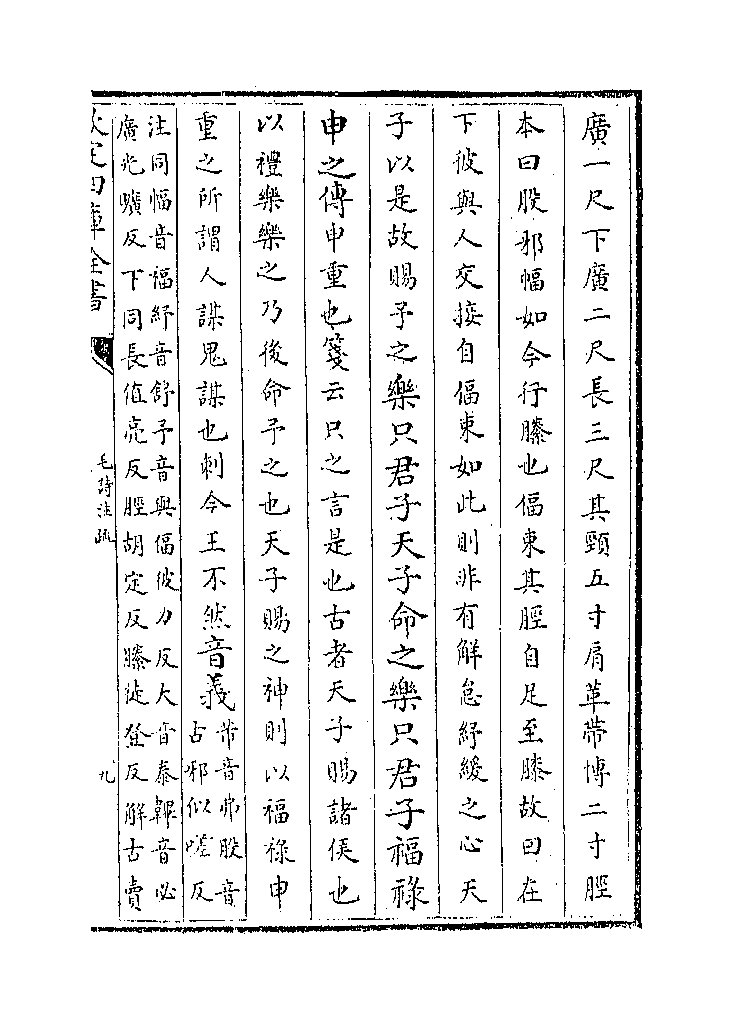 廣一尺下廣二尺長三尺其頸五寸肩革帶博二寸脛
本曰股邪幅如今行縢也偪束其脛自足至膝故曰在
下彼與人交接自偪束如此則非有解怠紓緩之心天
子以是故賜予之樂只君子天子命之樂只君子福祿
申之傳申重也箋云只之言是也古者天子賜諸侯也
以禮樂樂之乃後命予之也天子賜之神則以福祿申
重之所謂人謀鬼謀也刺今王不然音義芾音弗股音
古邪似嗟反
注同幅音福紓音舒予音與偪彼力反大音泰韠音必
廣光曠反下同長值亮反脛胡定反縢徒登反解古賣
欽定四庫全書
毛詩注疏
九